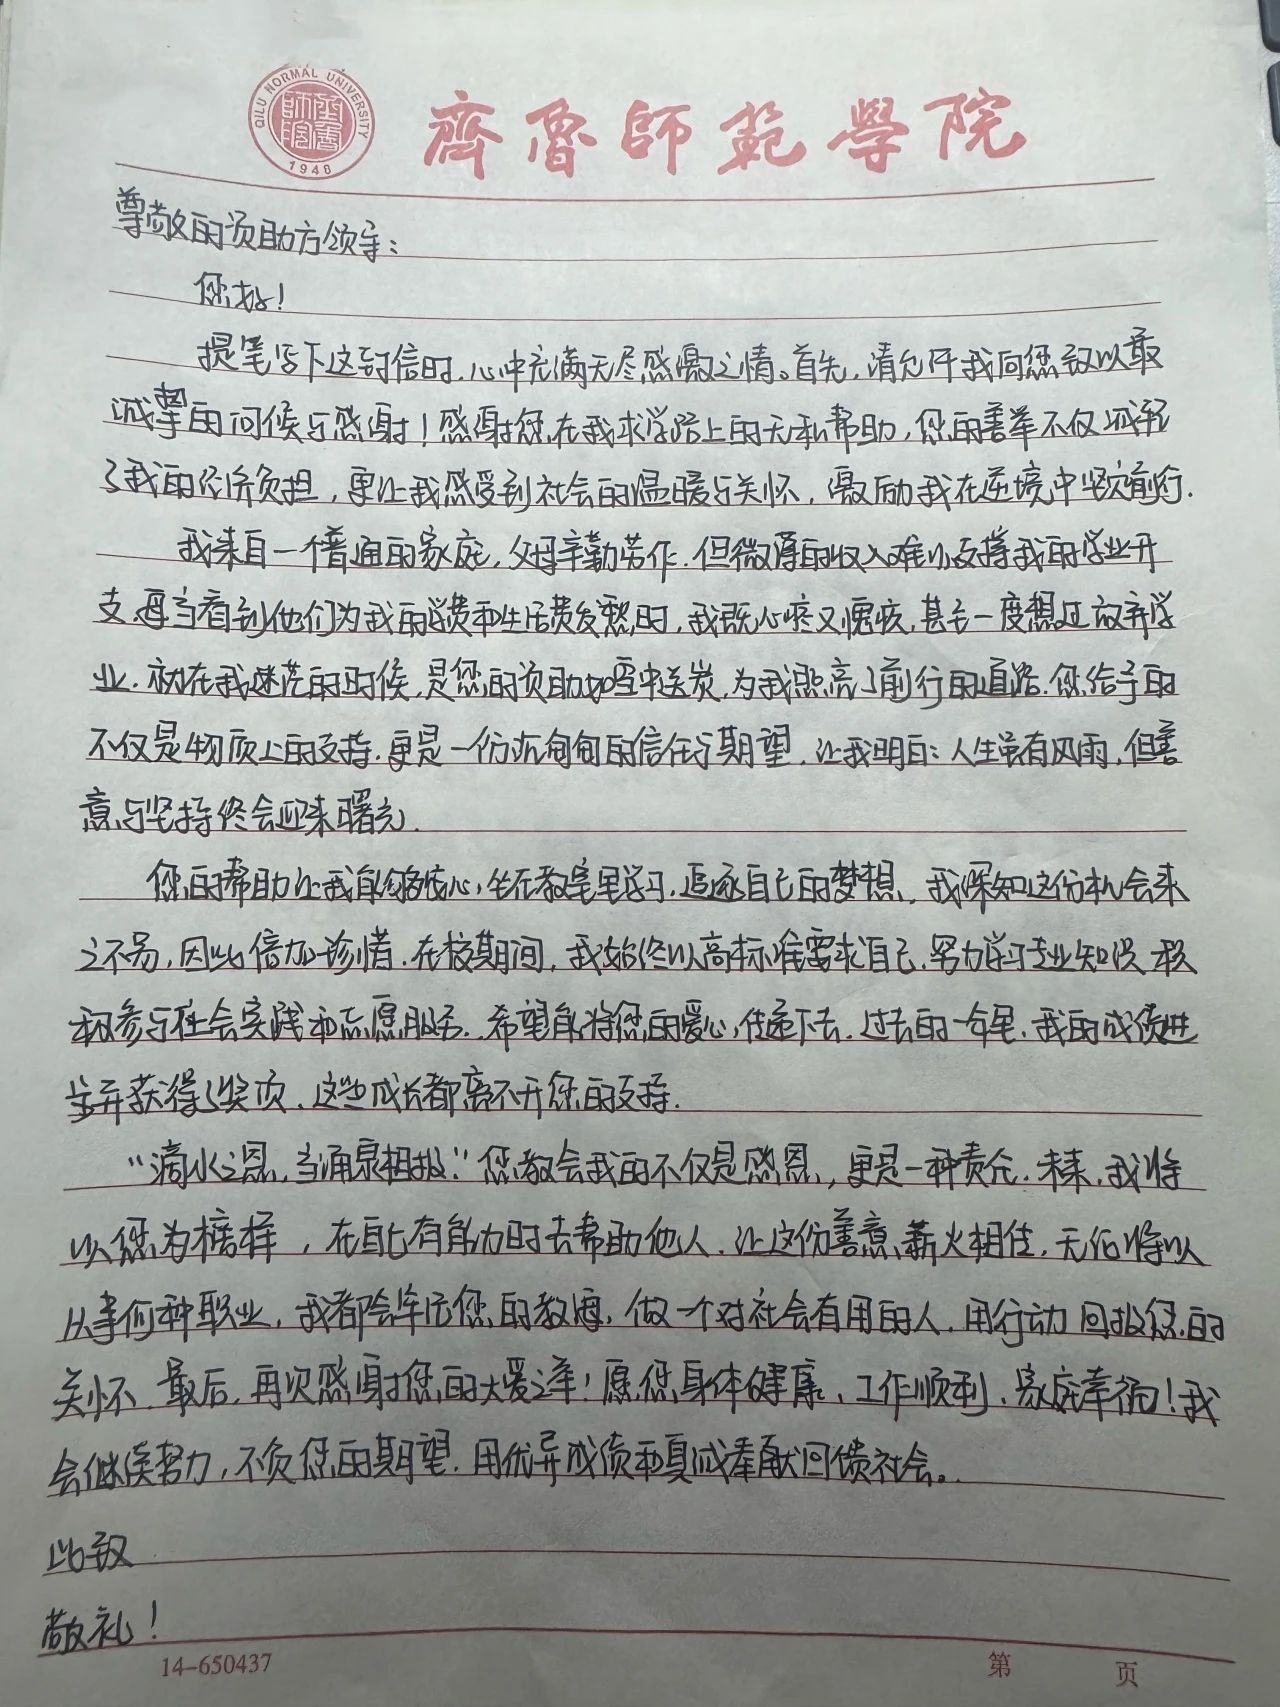 QILU NORMAL UNIVERSITY
1948
齊魯師範學院
尊敬的资助方领导：
您好！
提笔写下这封信时，心中充满无尽感激之情。首先，请允许我向您致以最
诚挚的问候与感谢！感谢您在我求学路上的无私帮助，您的善举不仅减轻
了我的经济负担，更让我感受到社会的温暖与关怀，激励我在逆境中坚定前行.
我来自一个普通的家庭，父母辛勤劳作.但微薄的收入难以支撑我的学业开
支.每当看到他们为我的学费和生活费发愁时，我既心疼又愧疚，甚至一度想过放弃学
业.就在我迷茫的时候，是您的资助如雪中送炭，为我照亮了前行的道路.您给予的
不仅是物质上的支持.更是一份沉甸甸的信任与期望，让我明白：人生虽有风雨，但善
意与坚持终会迎来曙光.
您的帮助让我能够安心坐在教室里学习，追逐自己的梦想，我深知这份机会来
之不易，因此倍加珍惜.在校期间，我始终以高标准要求自己，努力学习专业知识，积
极参与社会实践和志愿服务，希望能将您的爱心传递下去.过去的一年里，我的成绩进
步并获得了奖项，这些成长都离不开您的支持.
“滴水之恩，当涌泉相报”您教会我的不仅是感恩，更是一种责任.未来，我将
以您为榜样，在自己有能力时去帮助他人，让这份善意薪火相传，无论将以
从事何种职业，我都会牢记您的教诲，做一个对社会有用的人，用行动回报您的
关怀.最后，再次感谢您的大爱之举！愿您身体健康、工作顺利、家庭幸福！我
会继续努力，不负您的期望，用优异成绩和真诚奉献回馈社会。
此致
敬礼！
14-650437
第 页